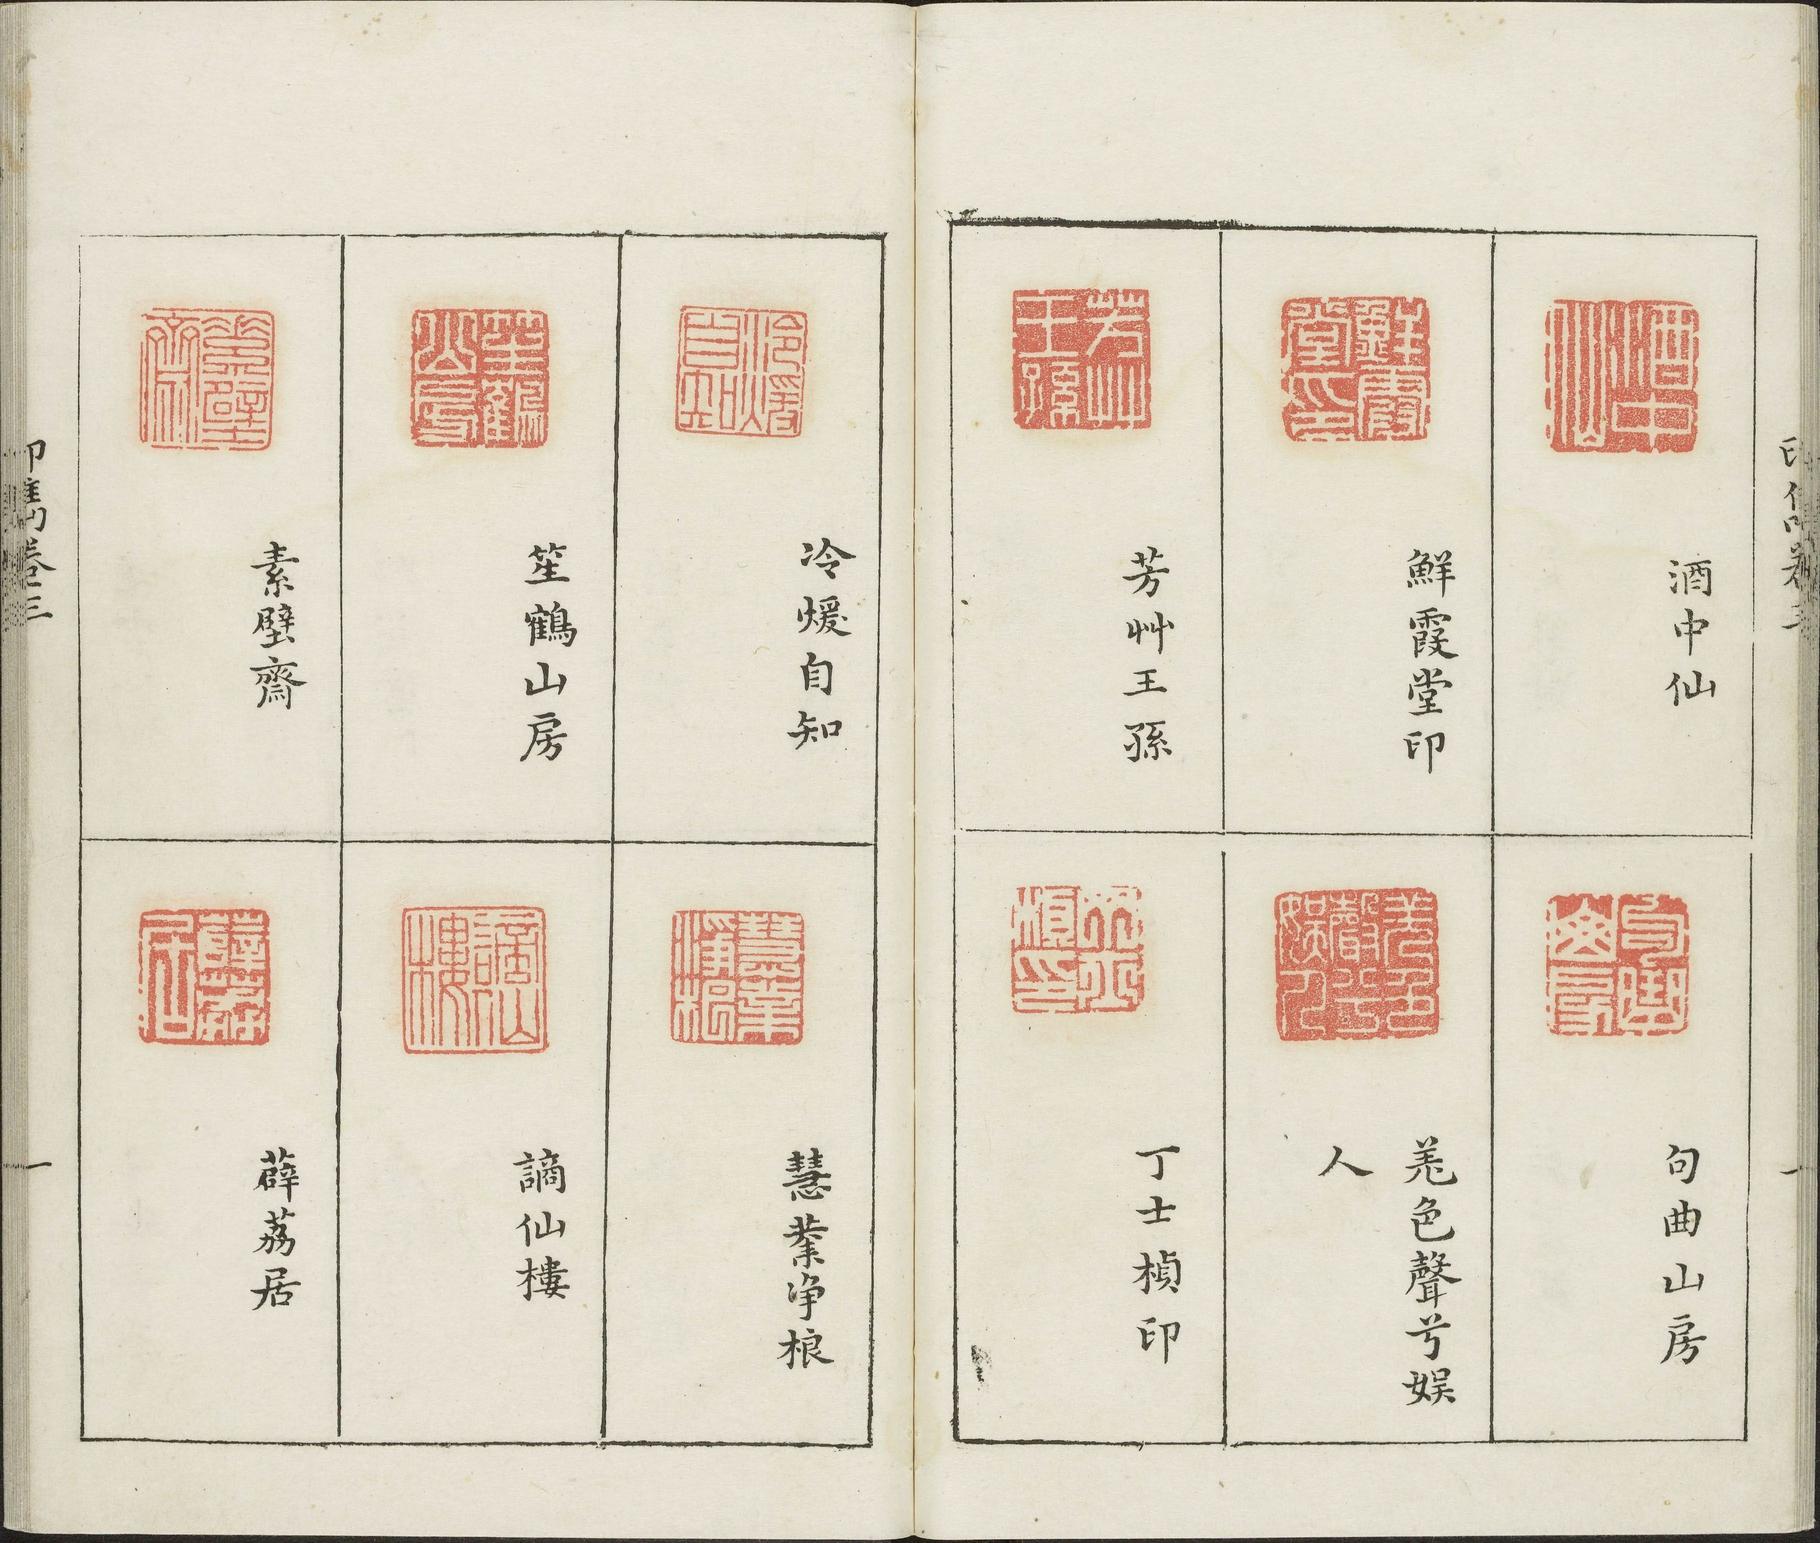 酒中仙
鮮霞堂印
芳艸王孫
句曲山房
羗色聲兮娛
人
丁士楨印
冷煖自知
笙鶴山房
素壁齋
慧業净根
謫仙樓
薜荔居
卷三
一